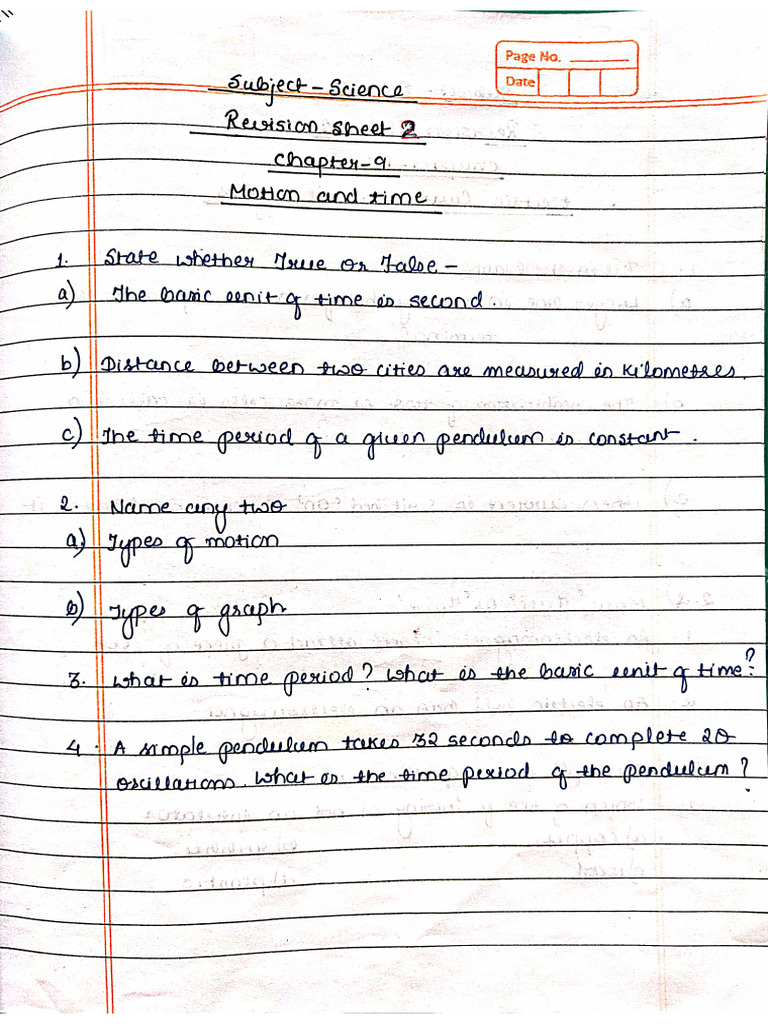 Page No.
Date
Subject - Science
Revision sheet 2
Chapter-9.
Motion and time
1. State whether True or False -
a) The basic unit of time is second.
b) Distance between two cities are measured in kilometres.
c) The time period of a given pendulum is constant.
2. Name any two
a) Types of motion
b) Types of graph
3. What is time period? What is the basic unit of time?
4. A simple pendulum takes 32 seconds to complete 20
oscillations. What is the time period of the pendulum?